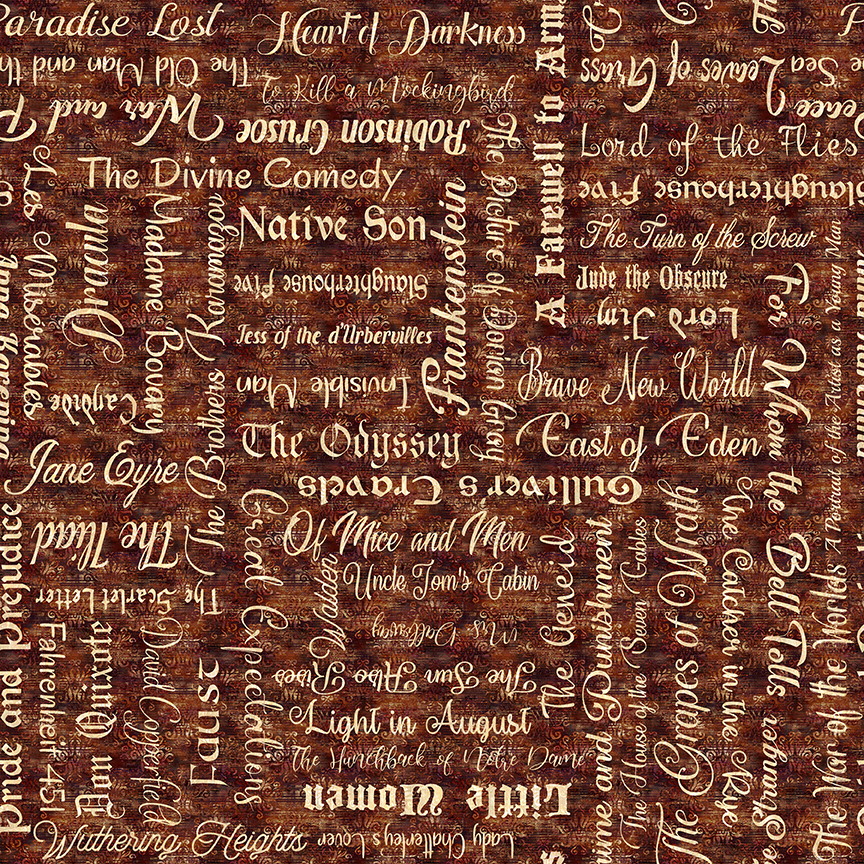 Paradise Lost
Heart of Darkness
A Farewell to Arms
The Old Man and th
Leaves of Grass
Sea
To Kill a Mockingbird
War and P
Peace
Robinson Crusoe
The Picture of Dorian Gray
Lord of the Flies
Les Miserables
The Divine Comedy
Slaughterhouse Five
Dracula
Madame Bovary
The Brothers Karamazov
Native Son
Frankenstein
The Turn of the Screw
Slaughterhouse Five
Jude the Obscure
For Whom the Bell Tolls
A Portrait of the Artist as a Young Man
Lord Jim
Tess of the d'Urbervilles
Invisible Man
Brave New World
Candide
The Odyssey
East of Eden
Jane Eyre
Gulliver's Travels
Pride and Prejudice
The Iliad
Great Expectations
Of Mice and Men
The Aeneid
Crime and Punishment
The House of the Seven Gables
The Grapes of Wrath
The Catcher in the Rye
The War of the Worlds
Walden
Uncle Tom's Cabin
The Scarlet Letter
Mrs. Dalloway
Fahrenheit 451
Don Quixote
David Copperfield
Faust
The Sun Also Rises
Light in August
The Hunchback of Notre Dame
Little Women
Wuthering Heights
Lady Chatterley's Lover